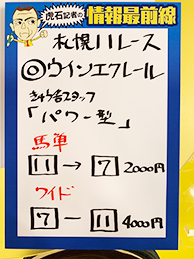 虎石記者の
情報最前線
札幌11レース
◎ウインエクレール
きゅう舎スタッフ
「パワー型」
馬単
11→7 2000円
ワイド
7－11 4000円